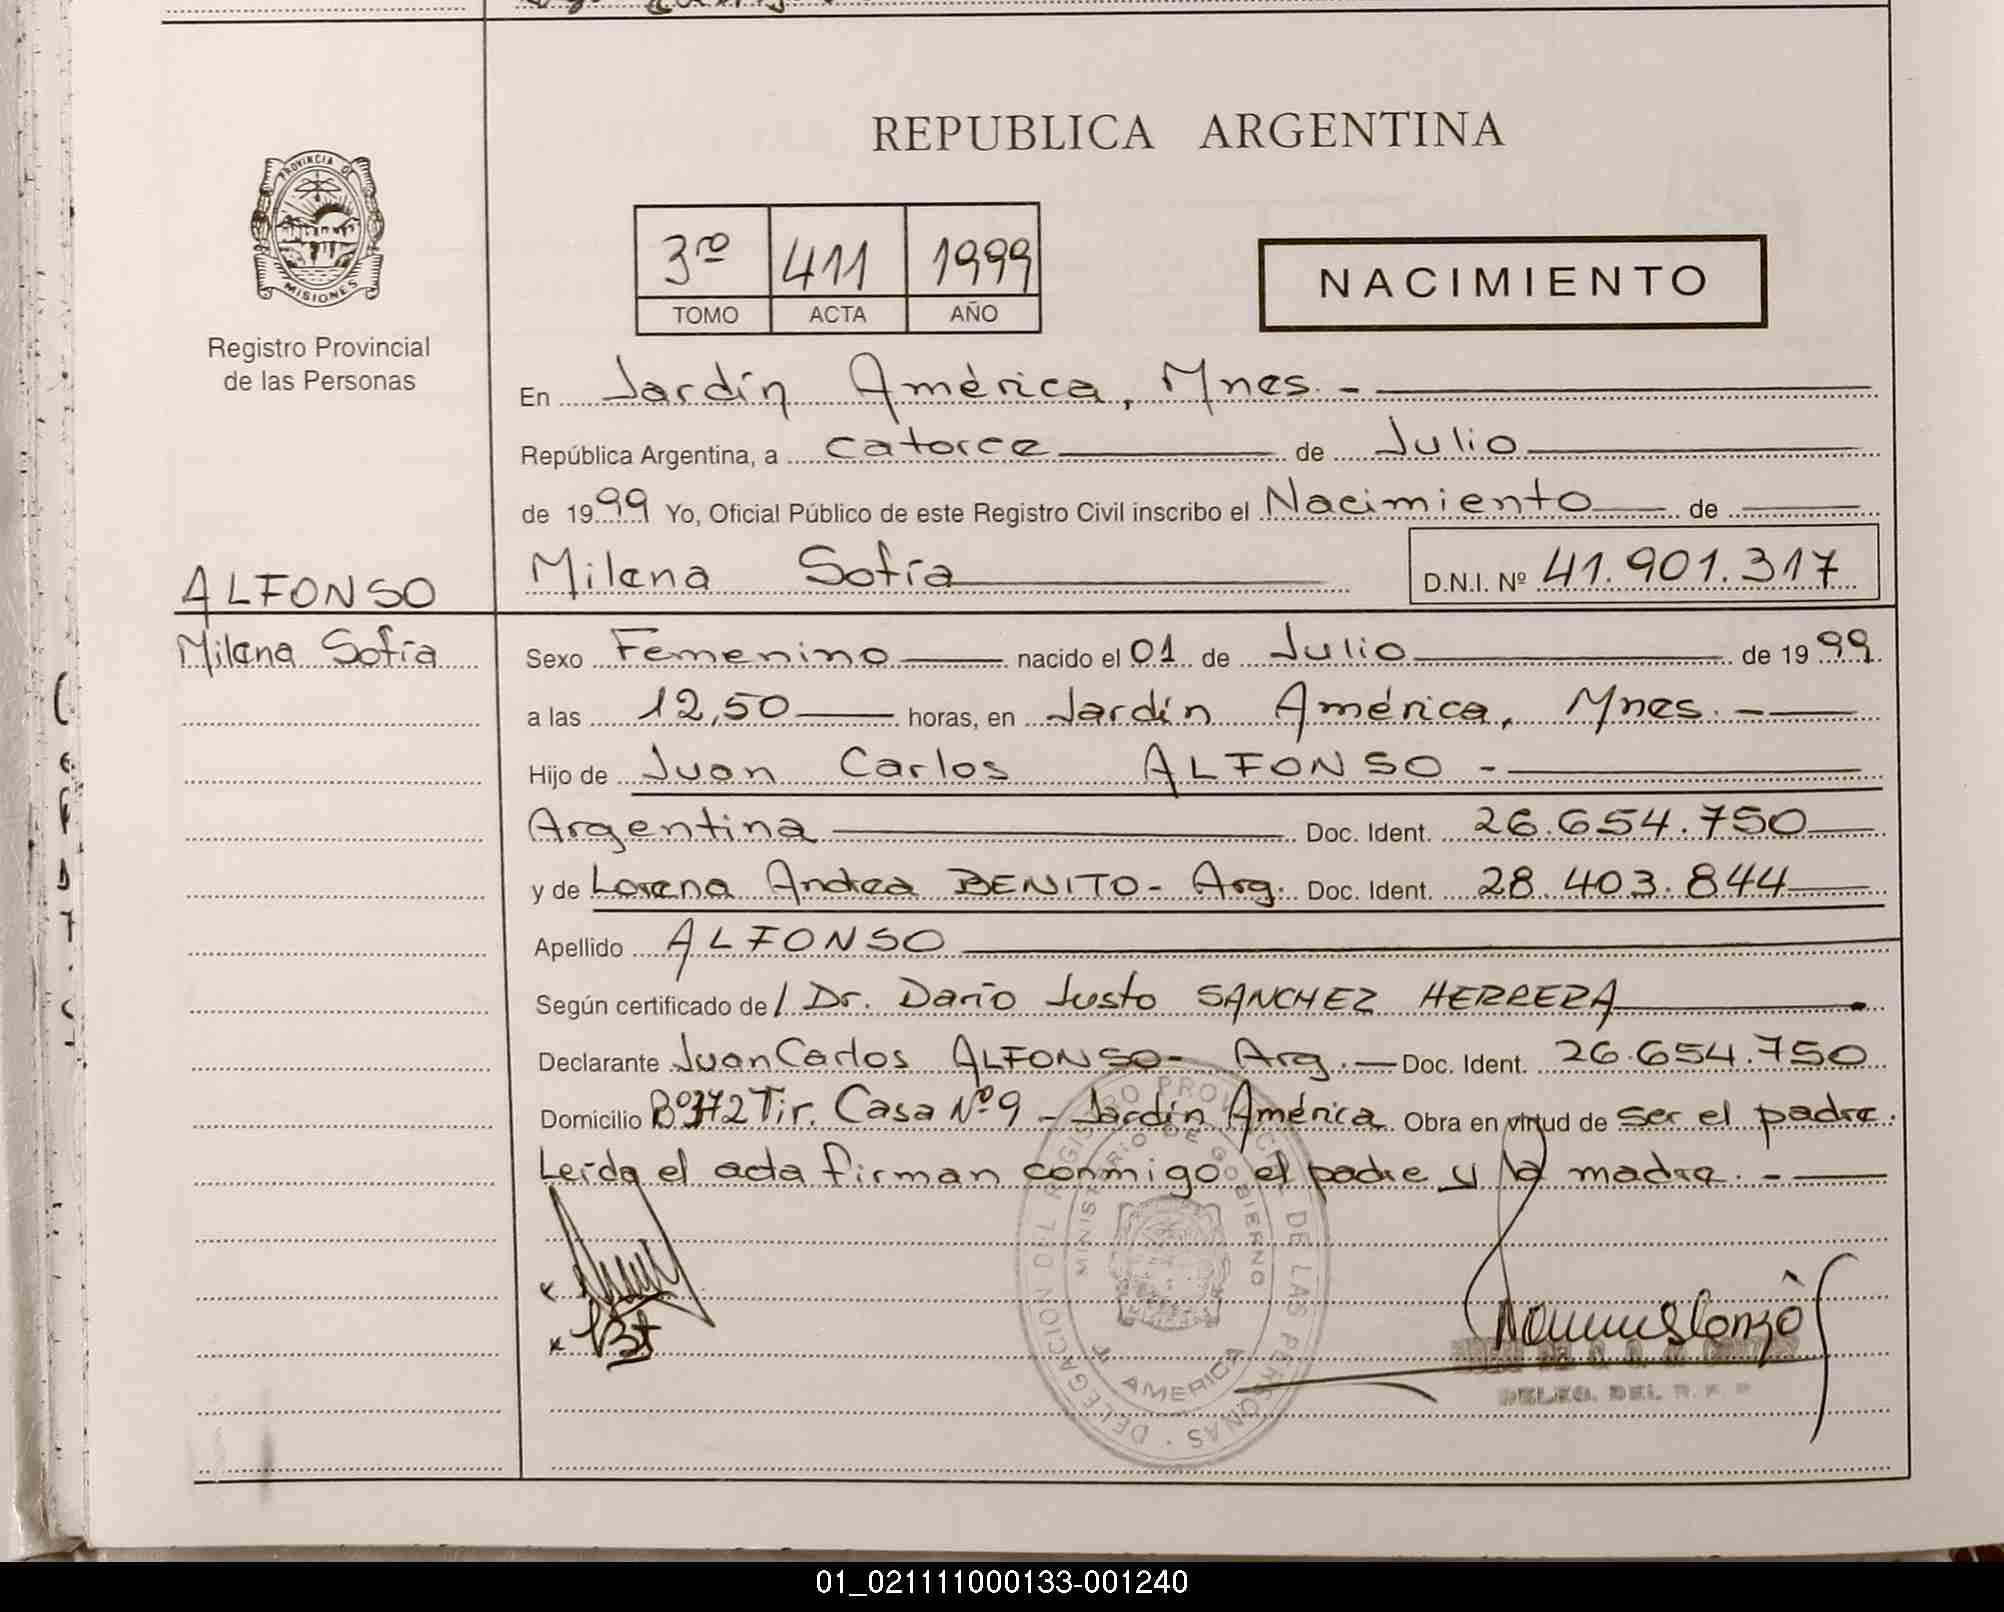 REPUBLICA ARGENTINA
PROVINCIA DE
MISIONES
Registro Provincial
de las Personas
3ro 411 1999
TOMO ACTA AÑO
NACIMIENTO
En Jardín América, Mnes. -
República Argentina, a catorce de Julio
de 1999 Yo, Oficial Público de este Registro Civil inscribo el Nacimiento de
Milena Sofía D.N.I. Nº 41.901.317
ALFONSO
Milena Sofía
Sexo Femenino nacido el 01 de Julio de 1999
a las 12,50 horas, en Jardín América, Mnes. -
Hijo de Juan Carlos ALFONSO -
Argentina Doc. Ident. 26.654.750
y de Lorena Andrea BENITO - Arg. Doc. Ident. 28.403.844
Apellido ALFONSO
Según certificado de / Dr. Darío Justo SANCHEZ HERRERA
Declarante Juan Carlos ALFONSO - Arg. - Doc. Ident. 26.654.750
Domicilio Bº 372 Tir. Casa Nº 9 - Jardín América Obra en virtud de ser el padre.
Leída el acta firman conmigo el padre y la madre. -
DELEGACION DEL REGISTRO PROVINCIAL DE LAS PERSONAS
MINISTERIO DE GOBIERNO
AMERICA
DELEG. DEL R. P. P
01_021111000133-001240